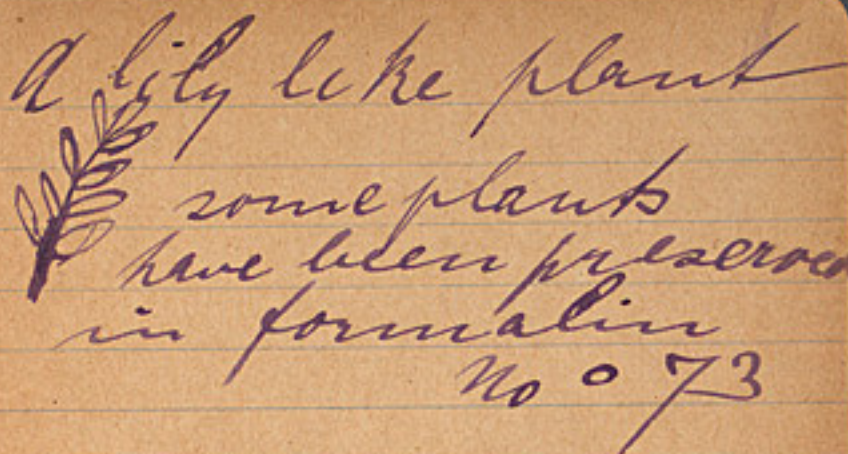 A lily like plant
some plants
have been preserved
in formalin
No o 73